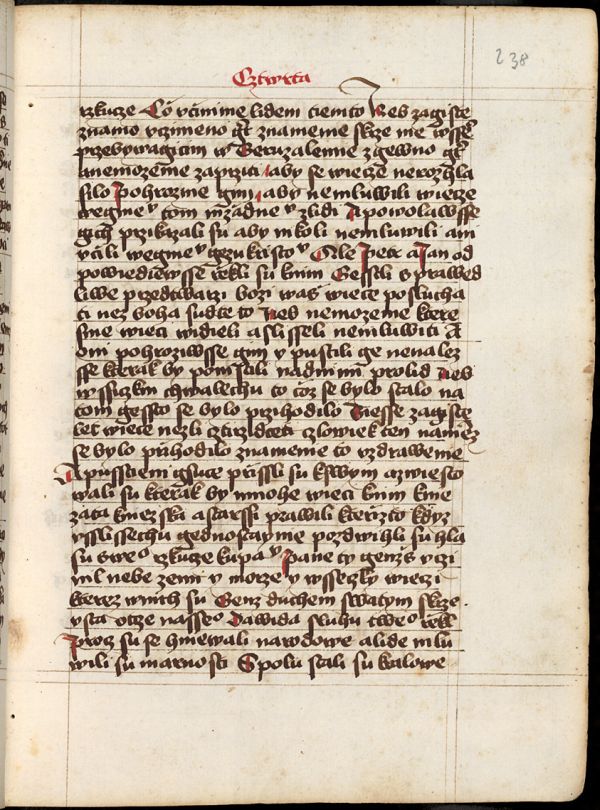 238
Cztwrta
rzkucze Co vcinime lidem tiemto Neb zagiste
znamo vczineno gt znamenie skrze nie wsse
przebywagicim w Geruzalemie zgewno gt
anemozeme zaprziti aby se wiecze nerozhla
silo Pohrozme gim aby nemluwili wiecze
wegmeº tom zadneº zlidi A powolawsse
gich przikazali su aby nikoli nemluwili ani
vcili wegmeº gezukristoº Ale Petr a Jan od
powiediewsse rzekli su knim Gestli sprawed
liwe przedtwarzi bozi was wiece poslucha
ti nez boha sudte to Neb nemozeme ktere
sme wieci widieli a slisseli nemluwiti A
oni pohroziwsse gim pustili ge nenalez
sse kterak by pomstili nadnimi prolid Neb
wssiczkni chwalechu to coz se bylo stalo na
tom gessto se bylo przihodilo Biesse zagiste
let wiece nezli cztrzidceti czlowiek ten namez
se bylo prihodilo znamenie to vzdrawenie
A pussczieni gsuce prissli su kswym a zwiesto
wali su kterak by mnohe wieci knim knie
zata kniezska a starssi prawili kterizto kdyz
vslissechu gednostaynie pozdwihli su hla
su sweº rzkuze kupaº Pane ty genzs vczi
nil nebe zemi y morze y wsseczky wieczi
kterez wnich su Genz duchem swatym skrze
vsta otze nasseº Dawida sluhu tweº rekl
Procz su se hniewali narodowe a lide mlu
wili su marnosti Spolu stali su kralowe